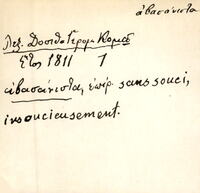 ἀβασάνιστα
Λεξ. Δοσιθ. Γερμ. Κομᾶ
Ἔτος 1811 1
ἀβασάνιστα, ἐπίρ. sans souci,
insoucieusement.